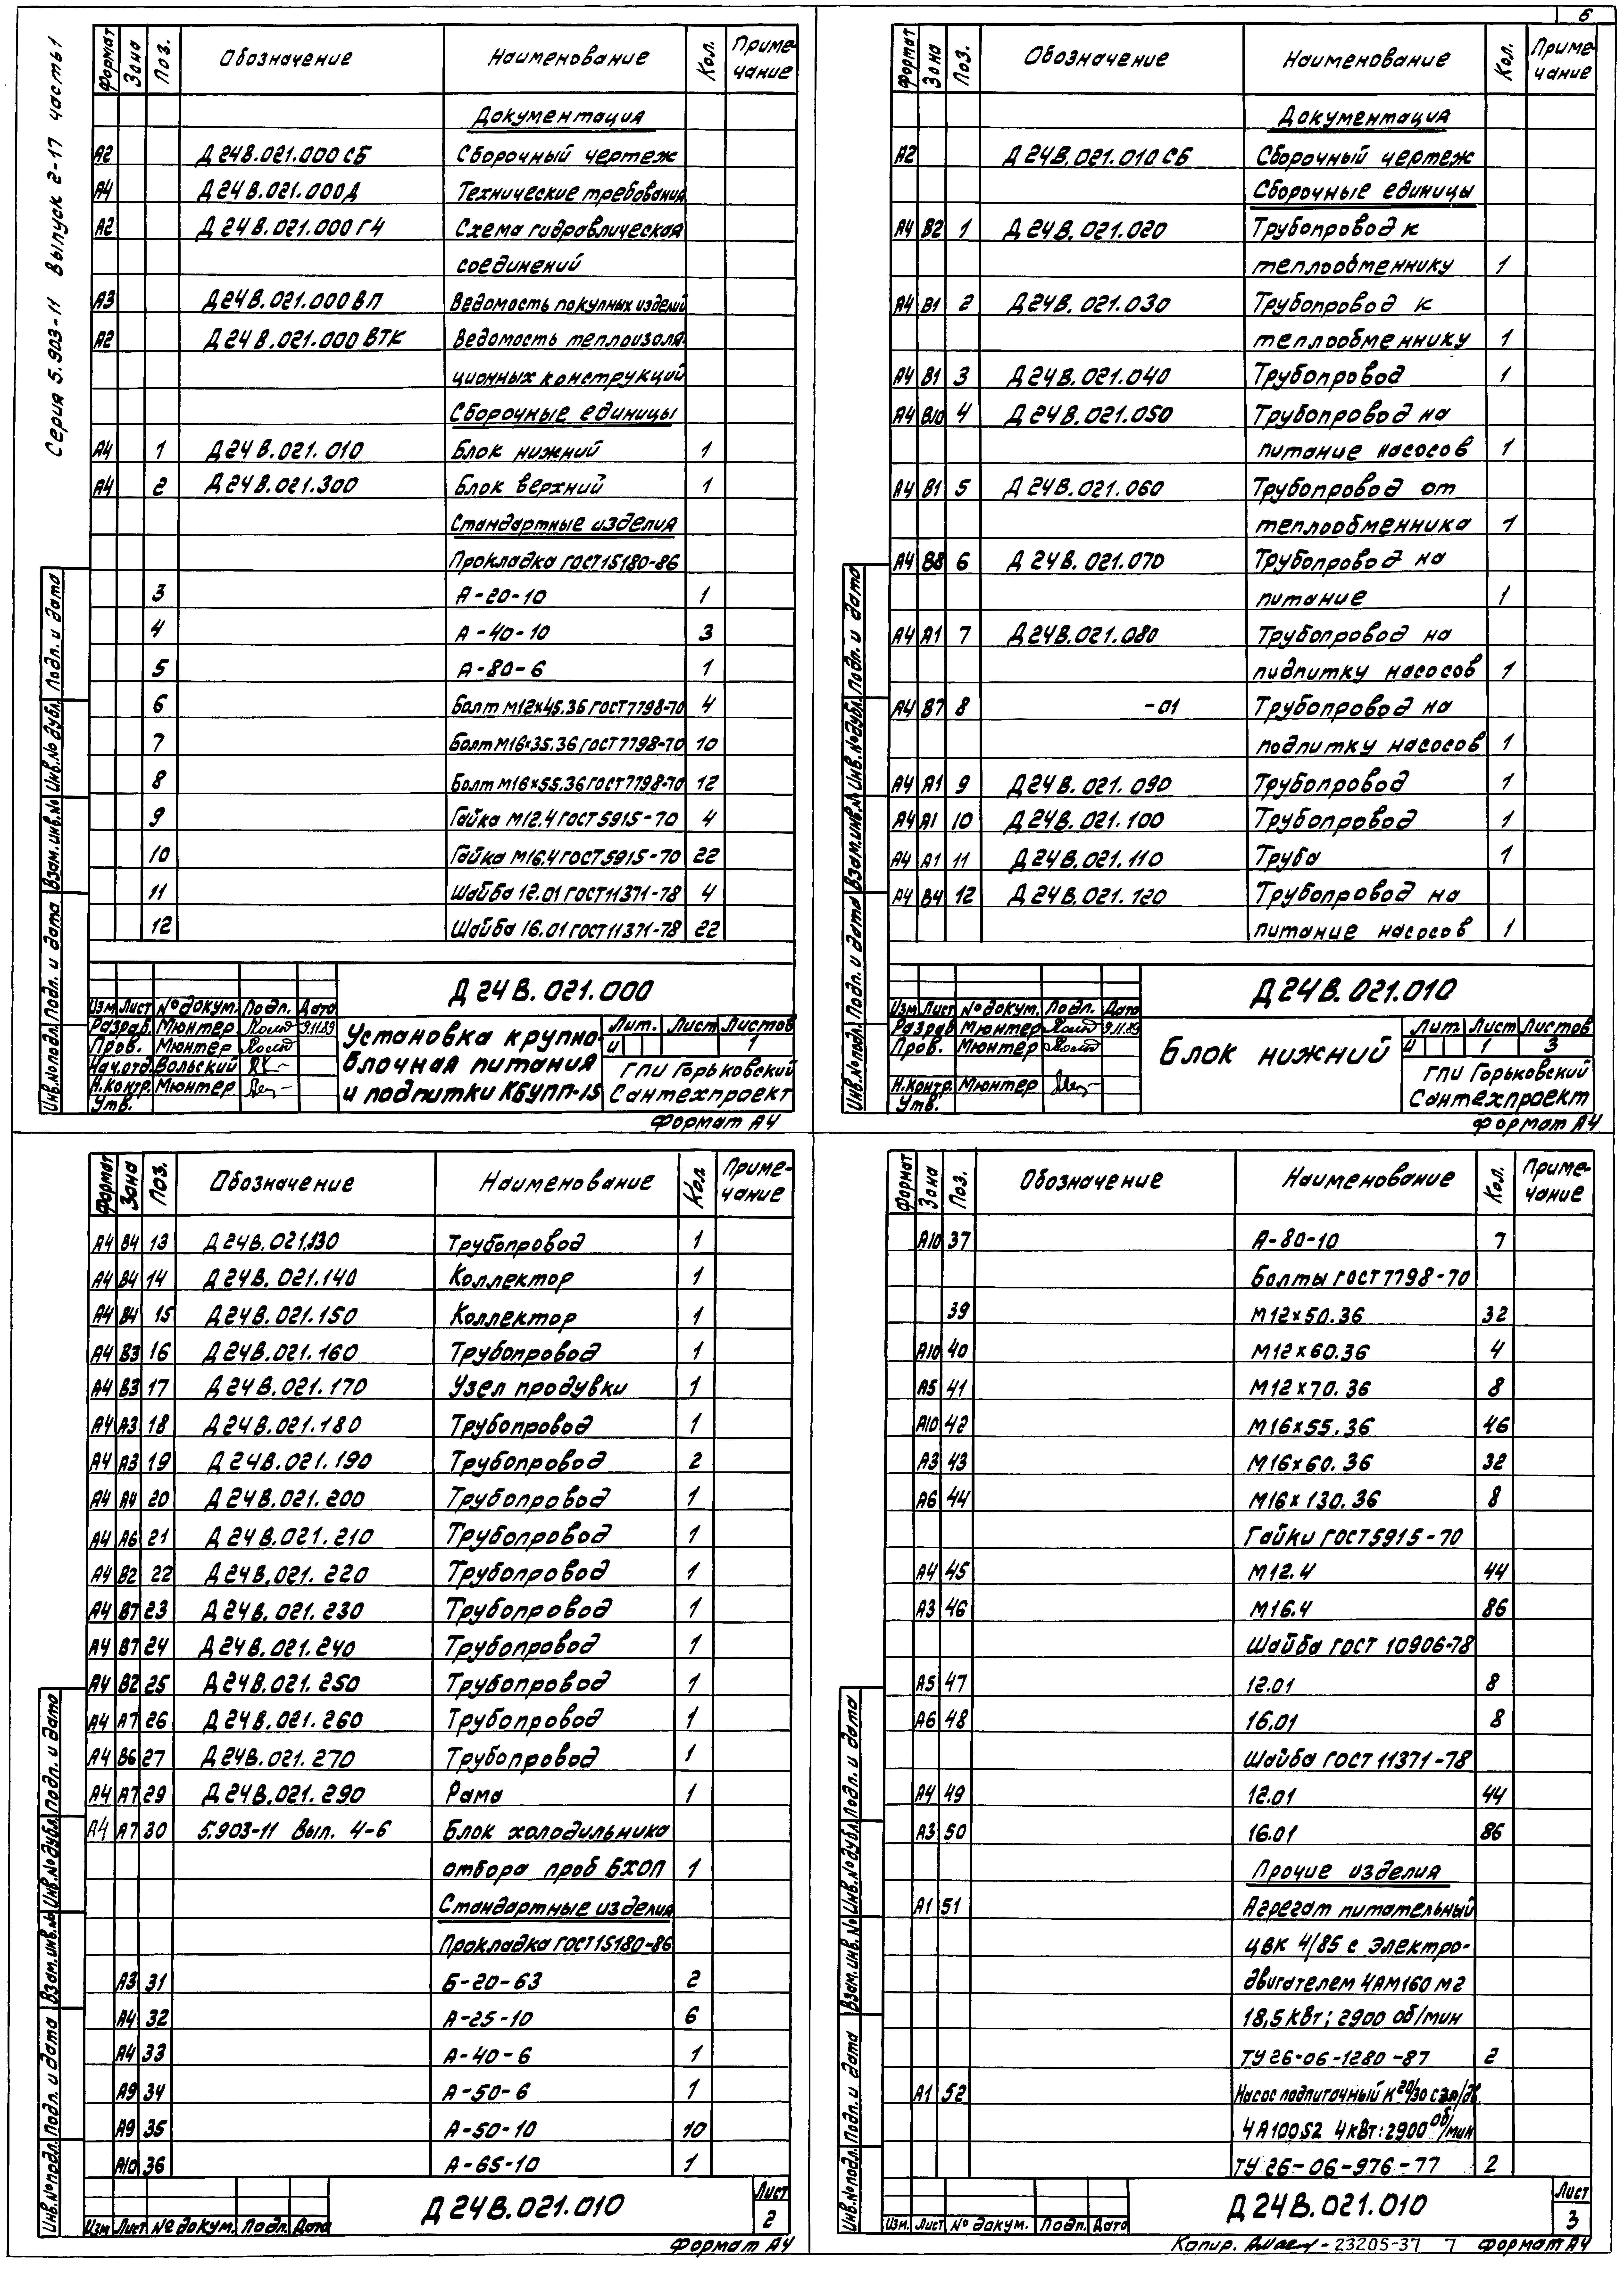 6
Серия 5.903-11 Выпуск 2-17 часть 1
Формат Зона Поз. Обозначение Наименование Кол. Приме-
чание
Документация
А2 Д24В.021.000СБ Сборочный чертеж
А4 Д24В.021.000Д Технические требования
А2 Д24В.021.000Г4 Схема гидравлическая
соединений
А3 Д24В.021.000ВП Ведомость покупных изделий
А2 Д24В.021.000ВТК Ведомость теплоизоля-
ционных конструкций
Сборочные единицы
А4 1 Д24В.021.010 Блок нижний 1
А4 2 Д24В.021.300 Блок верхний 1
Стандартные изделия
Прокладка ГОСТ15180-86
3 А-20-10 1
4 А-40-10 3
5 А-80-6 1
6 Болт М12×45.36 ГОСТ7798-70 4
7 Болт М16×35.36 ГОСТ7798-70 10
8 Болт М16×55.36 ГОСТ7798-70 12
9 Гайка М12.4 ГОСТ5915-70 4
10 Гайка М16.4 ГОСТ5915-70 22
11 Шайба 12.01 ГОСТ11371-78 4
12 Шайба 16.01 ГОСТ11371-78 22
Инв.№подл. Подп. и дата Взам.инв.№ Инв.№дубл. Подп. и дата
Д24В.021.000
Изм Лист №докум. Подп. Дата
Разраб. Мюнтер 9.11.89
Пров. Мюнтер
Нач.отд. Вольский
Н.контр. Мюнтер
Утв.
Установка крупно-
блочная питания
и подпитки КБУПП-15
Лит. Лист Листов
И 1
ГПИ Горьковский
Сантехпроект
Формат А4
Формат Зона Поз. Обозначение Наименование Кол. Приме-
чание
Документация
А2 Д24В.021.010СБ Сборочный чертеж
Сборочные единицы
А4 В2 1 Д24В.021.020 Трубопровод к
теплообменнику 1
А4 В1 2 Д24В.021.030 Трубопровод к
теплообменнику 1
А4 В1 3 Д24В.021.040 Трубопровод 1
А4 В10 4 Д24В.021.050 Трубопровод на
питание насосов 1
А4 В1 5 Д24В.021.060 Трубопровод от
теплообменника 1
А4 В8 6 Д24В.021.070 Трубопровод на
питание 1
А4 А1 7 Д24В.021.080 Трубопровод на
пидпитку насосов 1
А4 В7 8 -01 Трубопровод на
подпитку насосов 1
А4 А1 9 Д24В.021.090 Трубопровод 1
А4 А1 10 Д24В.021.100 Трубопровод 1
А4 А1 11 Д24В.021.110 Труба 1
А4 В4 12 Д24В.021.120 Трубопровод на
питание насосов 1
Инв.№подл. Подп. и дата Взам.инв.№ Инв.№дубл. Подп. и дата
Д24В.021.010
Изм Лист №докум. Подп. Дата
Разраб Мюнтер 9.11.89
Пров. Мюнтер
Н.контр. Мюнтер
Утв.
Блок нижний
Лит Лист Листов
И 1 3
ГПИ Горьковский
Сантехпроект
Формат А4
Формат Зона Поз. Обозначение Наименование Кол. Приме-
чание
А4 В4 13 Д24В.021.130 Трубопровод 1
А4 В4 14 Д24В.021.140 Коллектор 1
А4 В4 15 Д24В.021.150 Коллектор 1
А4 В3 16 Д24В.021.160 Трубопровод 1
А4 В3 17 Д24В.021.170 Узел продувки 1
А4 А3 18 Д24В.021.180 Трубопровод 1
А4 А3 19 Д24В.021.190 Трубопровод 2
А4 А4 20 Д24В.021.200 Трубопровод 1
А4 А6 21 Д24В.021.210 Трубопровод 1
А4 В2 22 Д24В.021.220 Трубопровод 1
А4 В7 23 Д24В.021.230 Трубопровод 1
А4 В7 24 Д24В.021.240 Трубопровод 1
А4 В2 25 Д24В.021.250 Трубопровод 1
А4 А7 26 Д24В.021.260 Трубопровод 1
А4 В6 27 Д24В.021.270 Трубопровод 1
А4 А7 29 Д24В.021.290 Рама 1
А4 А7 30 5.903-11 Вып. 4-6 Блок холодильника
отбора проб БХОП 1
Стандартные изделия
Прокладка ГОСТ15180-86
А3 31 Б-20-63 2
А4 32 А-25-10 6
А4 33 А-40-6 1
А9 34 А-50-6 1
А9 35 А-50-10 10
А10 36 А-65-10 1
Инв.№подл. Подп. и дата Взам.инв.№ Инв.№дубл. Подп. и дата
Изм Лист № докум. Подп. Дата
Д24В.021.010
Лист
2
Формат А4
Формат Зона Поз. Обозначение Наименование Кол. Приме-
чание
А10 37 А-80-10 7
Болты ГОСТ7798-70
39 М12×50.36 32
А10 40 М12×60.36 4
А5 41 М12×70.36 8
А10 42 М16×55.36 46
А3 43 М16×60.36 32
А6 44 М16×130.36 8
Гайки ГОСТ5915-70
А4 45 М12.4 44
А3 46 М16.4 86
Шайба ГОСТ 10906-78
А5 47 12.01 8
А6 48 16.01 8
Шайба ГОСТ 11371-78
А4 49 12.01 44
А3 50 16.01 86
Прочие изделия
А1 51 Агрегат питательный
ЦВК 4/85 с электро-
двигателем 4АМ160М2
18,5 КВт; 2900 об/мин
ТУ26-06-1280-87 2
А1 52 Насос подпиточный К20/30 с эл/дв.
4А100S2 4КВт:2900 об/мин
ТУ 26-06-976-77 2
Инв.№подл. Подп. и дата Взам.инв.№ Инв.№дубл. Подп. и дата
Изм. Лист № докум. Подп. Дата
Д24В.021.010
Лист
3
Копир. - 23205-37 7 Формат А4